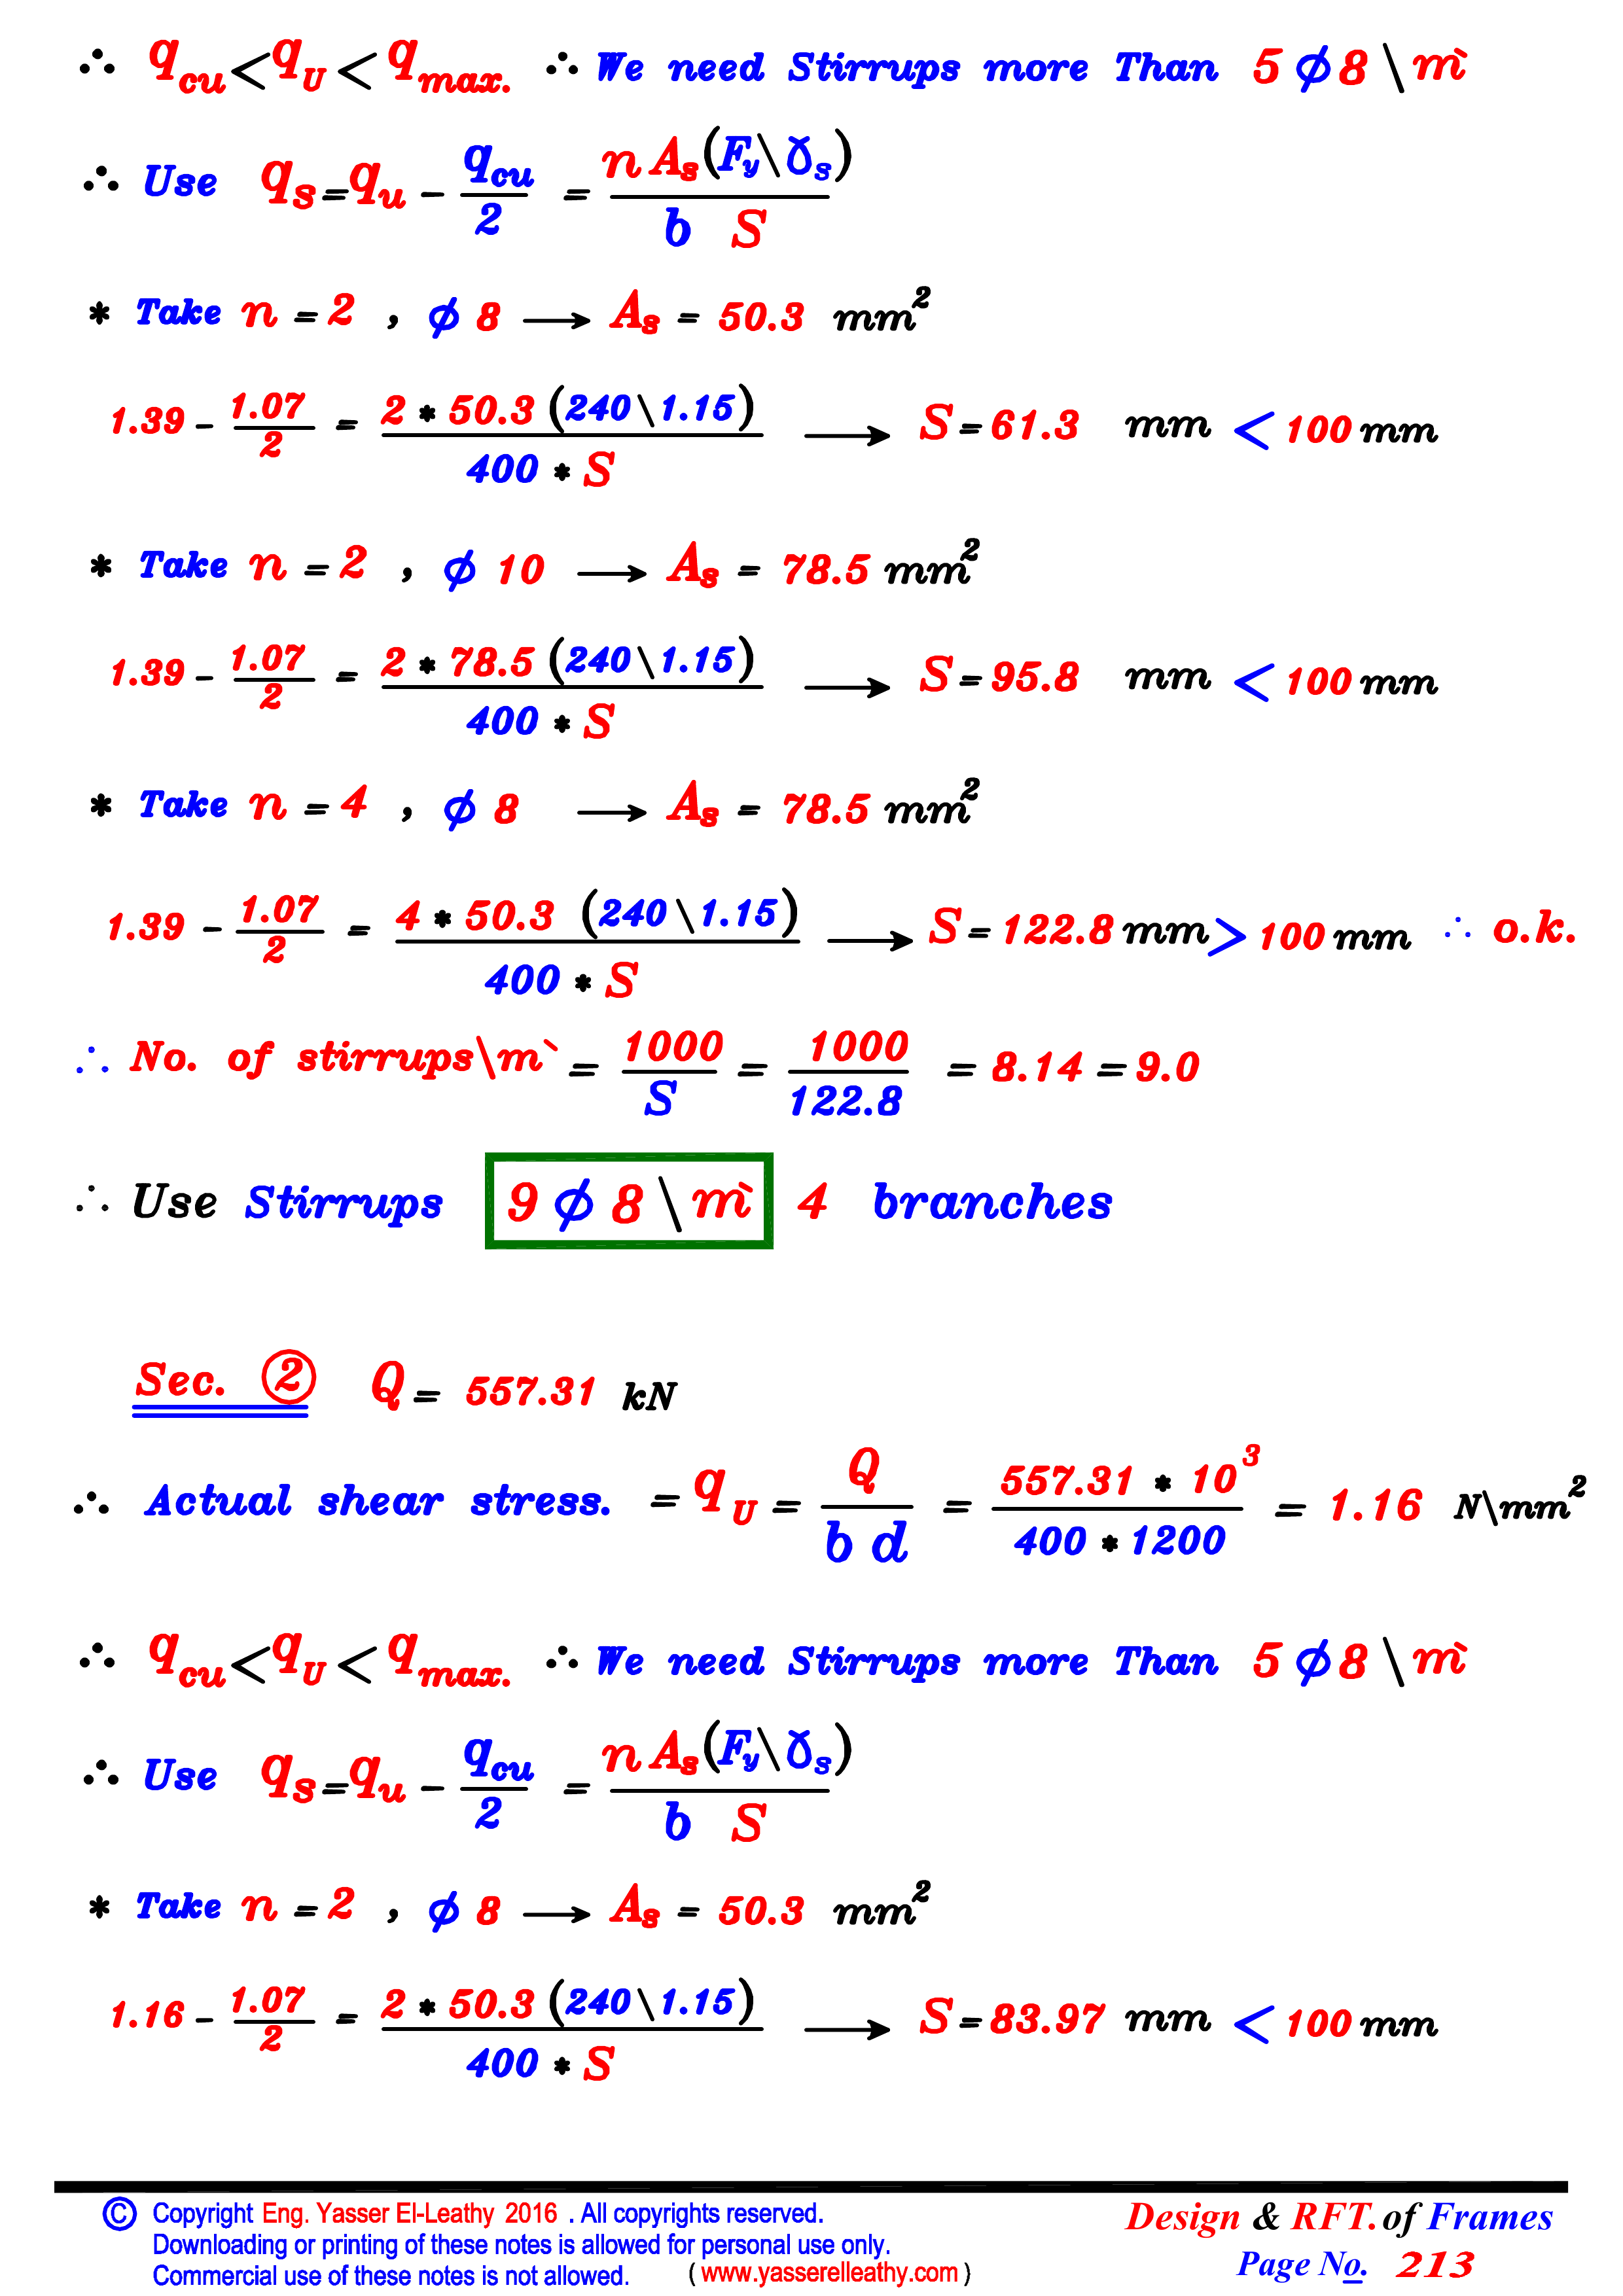 ∴ q_cu < q_U < q_max. ∴ We need Stirrups more Than 5 ϕ 8 \ m`
∴ Use q_s = q_u - q_cu / 2 = n A_s (F_y \ γ_s) / b S
* Take n = 2 , ϕ 8 → A_s = 50.3 mm²
1.39 - 1.07 / 2 = 2 * 50.3 (240 \ 1.15) / 400 * S → S = 61.3 mm < 100 mm
* Take n = 2 , ϕ 10 → A_s = 78.5 mm²
1.39 - 1.07 / 2 = 2 * 78.5 (240 \ 1.15) / 400 * S → S = 95.8 mm < 100 mm
* Take n = 4 , ϕ 8 → A_s = 78.5 mm²
1.39 - 1.07 / 2 = 4 * 50.3 (240 \ 1.15) / 400 * S → S = 122.8 mm > 100 mm ∴ o.k.
∴ No. of stirrups\m` = 1000 / S = 1000 / 122.8 = 8.14 = 9.0
∴ Use Stirrups 9 ϕ 8 \ m` 4 branches
Sec. ② Q = 557.31 kN
∴ Actual shear stress. = q_U = Q / b d = 557.31 * 10³ / 400 * 1200 = 1.16 N\mm²
∴ q_cu < q_U < q_max. ∴ We need Stirrups more Than 5 ϕ 8 \ m`
∴ Use q_s = q_u - q_cu / 2 = n A_s (F_y \ γ_s) / b S
* Take n = 2 , ϕ 8 → A_s = 50.3 mm²
1.16 - 1.07 / 2 = 2 * 50.3 (240 \ 1.15) / 400 * S → S = 83.97 mm < 100 mm
© Copyright Eng. Yasser El-Leathy 2016 . All copyrights reserved.
Downloading or printing of these notes is allowed for personal use only.
Commercial use of these notes is not allowed. ( www.yasserelleathy.com )
Design & RFT. of Frames
Page No. 213